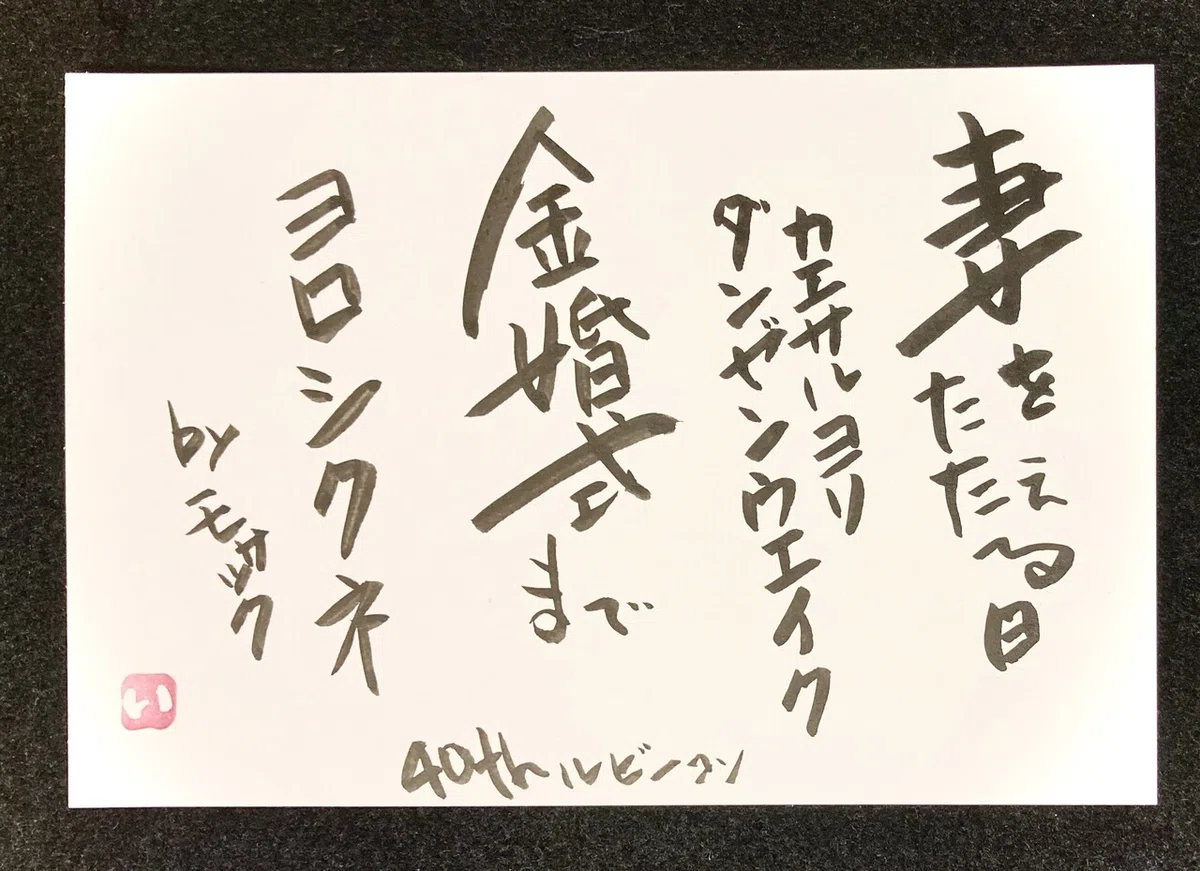 妻をたたえる日
カエサルヨリ
ダンゼンウエイク
金婚式まで
ヨロシクネ
by モサック
40th ルビーコン
い